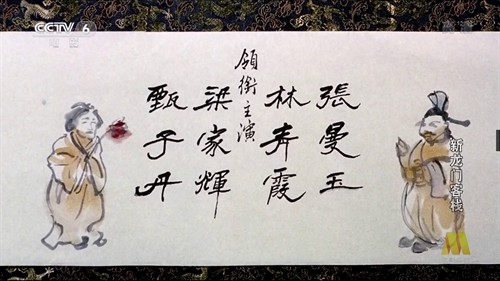 CCTV 6
領銜主演
張曼玉
林青霞
梁家輝
甄子丹
新龙门客栈